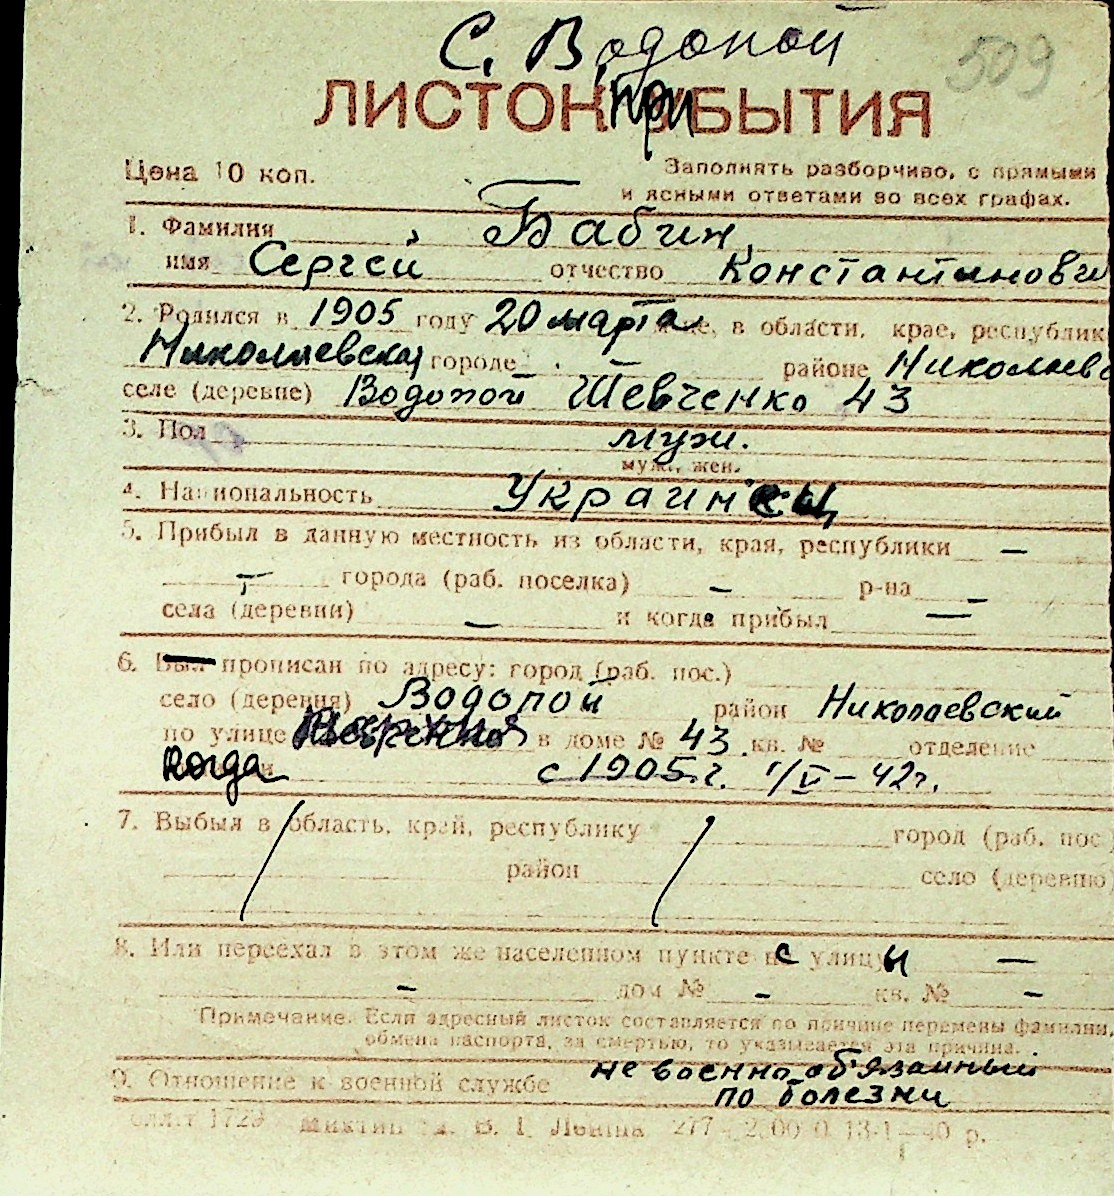 С. Водопой
509
ЛИСТОК ПРИБЫТИЯ
Цена 10 коп.
Заполнять разборчиво, с прямыми
и ясными ответами во всех графах.
1. Фамилия Бабин,
имя Сергей отчество Константинови
2. Родился в 1905 году 20 марта, в области, крае, республик
Николаевская городе - районе Николаевс
селе (деревне) Водопой Шевченко 43
3. Пол муж.
муж., жен.
4. Национальность Украинец
5. Прибыл в данную местность из области, края, республики —
— города (раб. поселка) — р-на —
села (деревни) — и когда прибыл —
6. Был прописан по адресу: город (раб. пос.)
село (деревня) Водопой район Николаевский
по улице в доме № 43 кв. № отделение
когда с 1905 г. 1/V – 42 г.
7. Выбыл в область, край, республику город (раб. пос
район село (деревню
8. Или переехал в этом же населенном пункте с улицы —
— дом № — кв. № —
Примечание. Если адресный листок составляется по причине перемены фамилии,
обмена паспорта, за смертью, то указывается эта причина.
9. Отношение к военной службе не военно обязанный
по болезни
1729 В. І. Леніна 277 - 13-1-40 р.